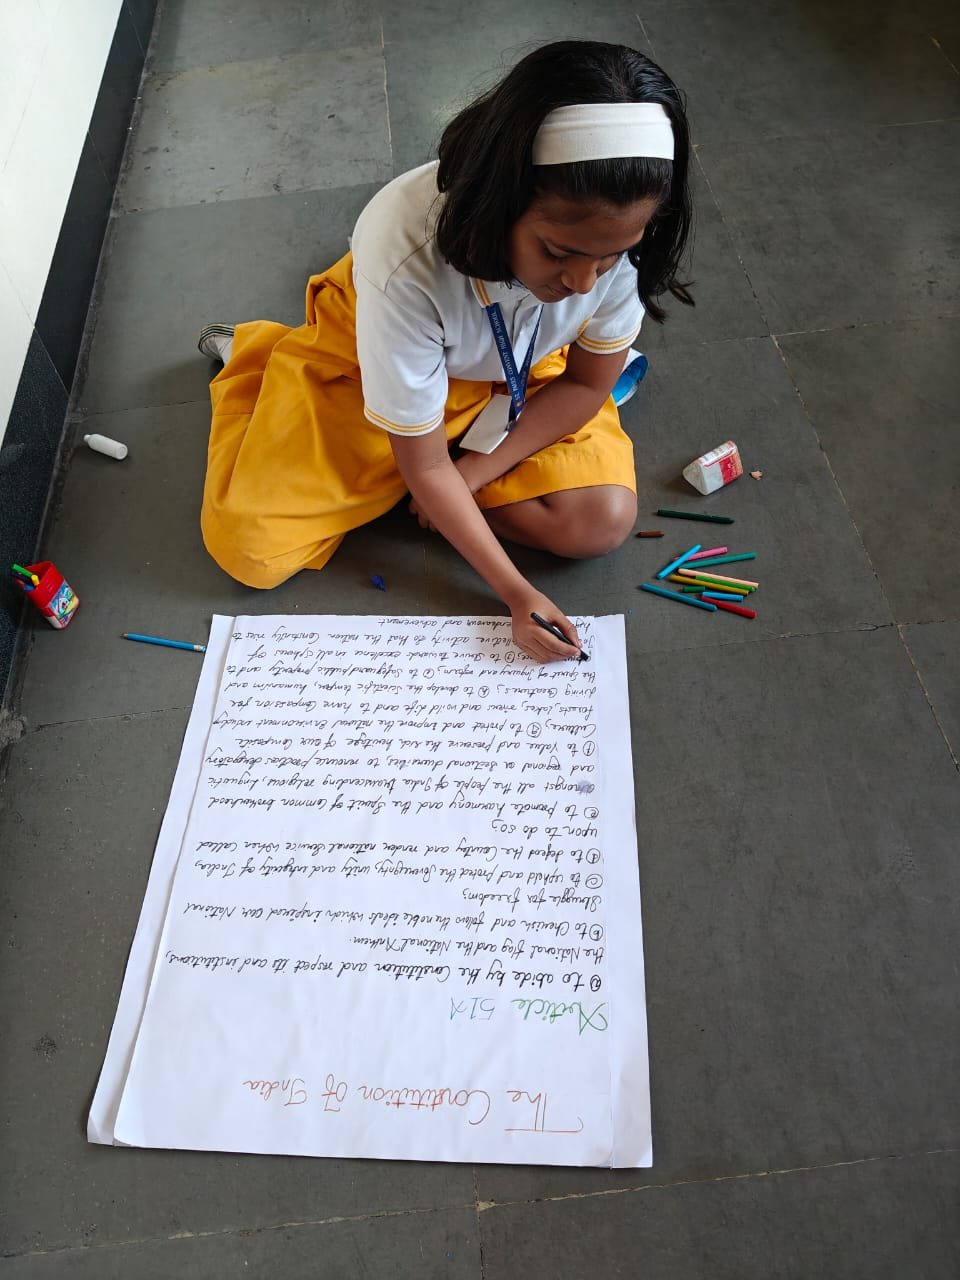 The Constitution Of India
Article 51A
ⓐ to abide by the Constitution and respect its and institutions,
the National flag and the National Anthem.
ⓑ to Cherish and follow the noble ideals which inspired our National
Struggle for freedom;
ⓒ to Uphold and Protect the Sovereignty, unity and integrity of India,
ⓓ to defend the Country and render national Service when Called
upon to do so;
ⓔ to promote harmony and the Spirit of Common brotherhood
amongst all the people of India transcending religious, linguistic
and regional or Sectional diversities, to renounce practices derogatory
ⓕ to Value and preserve the rich heritage of our Composite
Culture; ⓖ to protect and improve the national Environment including
forests, lakes, rivers and wild life and to have Compassion for
living Creatures; ⓗ to develop the Scientific temper, humanism and
the Spirit of inquiry and reform; ⓘ to Safeguard public property and to
ⓙ to Strive towards excellence in all Spheres of
collective activity So that the nation Constantly rises to
endeavour and achievement
CONVENT HIGH SCHOOL